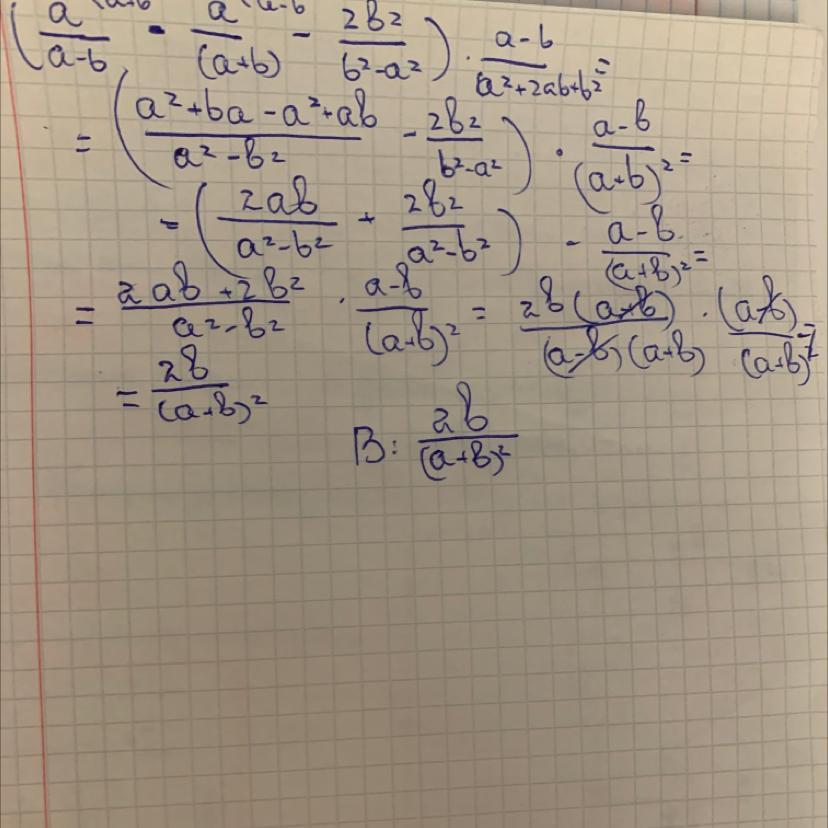 ( a/(a-b) - a/(a+b) - 2b²/(b²-a²) ) · (a-b)/(a²+2ab+b²) =
= ( (a²+ba-a²+ab)/(a²-b²) - 2b²/(b²-a²) ) · (a-b)/(a+b)² =
= ( 2ab/(a²-b²) + 2b²/(a²-b²) ) - (a-b)/(a+b)² =
= (2ab+2b²)/(a²-b²) · (a-b)/(a+b)² = 2b(a+b)/((a-b)(a+b)) · (a-b)/(a+b)² =
= 2b/(a+b)²
B: 2b/(a+b)²